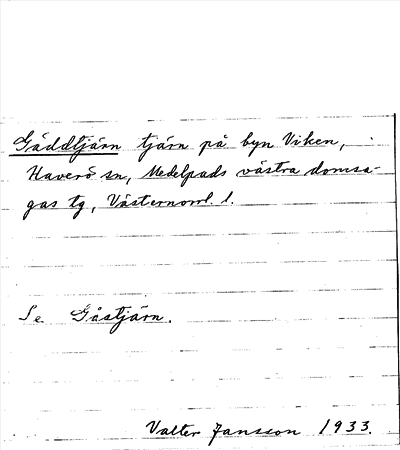 Gäddtjärn tjärn på byn Viken,
Haverö sn, Medelpads västra domsa-
gas tg, Västernorrl. l.
Se Gåstjärn.
Valter Jansson 1933.